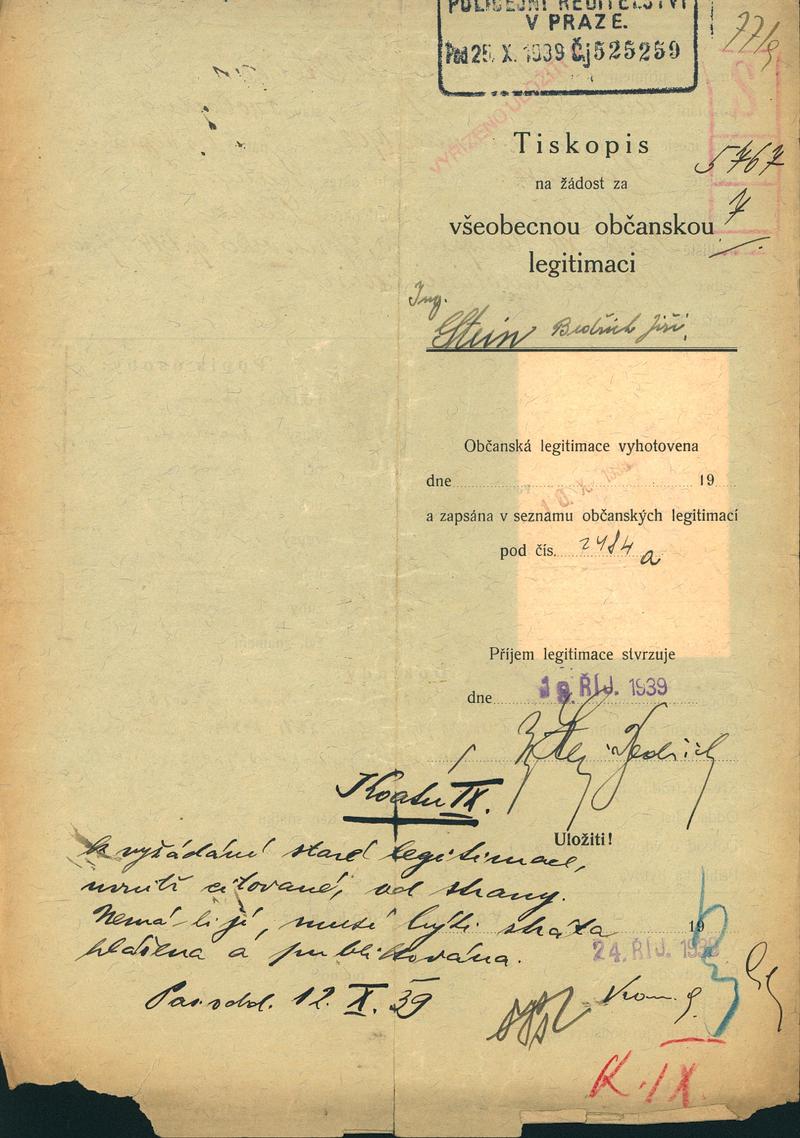 POLICEJNÍ ŘEDITELSTVÍ
V PRAZE.
25. X. 1939 Čj 525259
77/9
VYŘÍZENO ULOŽIT
Tiskopis
5767
na žádost za
7
všeobecnou občanskou
legitimaci
Ing.
Stein Bedřich Jiří,
Občanská legitimace vyhotovena
dne 19
a zapsána v seznamu občanských legitimací
pod čís. 2484 a
Příjem legitimace stvrzuje
dne 19. ŘÍJ. 1939
Bedřich
Koatu IX.
Uložiti!
k vyžádání staré legitimace,
uvnitř citované, od strany.
Nemá-li jí, musí býti ztráta
19
hlášena a publikována.
24. ŘÍJ. 1939
Pas. odd. 12. X. 39
K. IX.